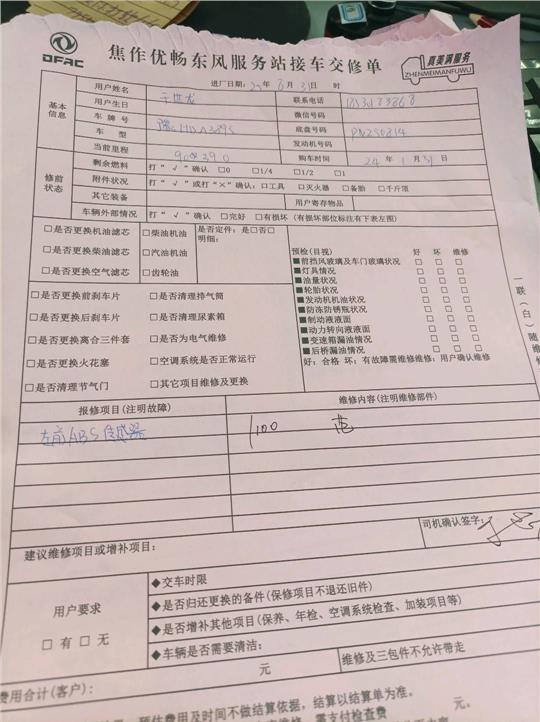 DFAC
焦作优畅东风服务站接车交修单
真美满服务
ZHENMEIMANFUWU
进厂日期:25年8月31日 时
基本信息
用户姓名 于世龙 联系电话
用户生日 微信号码
车牌号 底盘号码 PN250814
车型 发动机号码
当前里程 购车时间 24年1月31日
修前状态
剩余燃料 打“√”确认 □0 □1/4 □1/2 □1
附件状况 打“√”或打“×”确认:□工具 □灭火器 □备胎 □千斤顶
其它装备 用户寄存物品
车辆外部情况 打“√”确认 □完好 □有损坏(有损坏部位标注有下表左图)
□是否更换机油滤芯 □柴油机油 是否定件:是□否□
明细:
□是否更换柴油滤芯 □汽油机油
□是否更换空气滤芯 □齿轮油
预检(目视) 好 坏 维修
■前挡风玻璃及车门玻璃状况 □ □ □
■灯具情况 □ □ □
■油量状况 □ □ □
■轮胎状况 □ □ □
■发动机机油状况 □ □ □
■防冻防锈瓶状况 □ □ □
■制动液液面 □ □ □
■动力转向液液面 □ □ □
■变速箱漏油情况 □ □ □
■后桥漏油情况 □ □ □
好:合格 坏:有故障需维修维修:用户确认维修
□是否更换前刹车片 □是否清理排气筒
□是否更换后刹车片 □是否清理尿素箱
□是否更换离合三件套 □是否为电气维修
□是否更换火花塞 □空调系统是否正常运行
□是否清理节气门 □其它项目维修及更换
一联(白)随维
报修项目(注明故障) 维修内容(注明维修部件)
左前ABS传感器 100
司机确认签字:
建议维修项目或增补项目:
用户要求
□有□无
◆交车时限
◆是否归还更换的备件(保修项目不退还旧件)
◆是否增补其他项目(保养、年检、空调系统检查、加装项目等)
◆车辆是否需要清洁:
元 维修及三包件不允许带走
费用合计(客户):
预估费用及时间不做结算依据,结算以结算单为准。
需支付检查费 元。